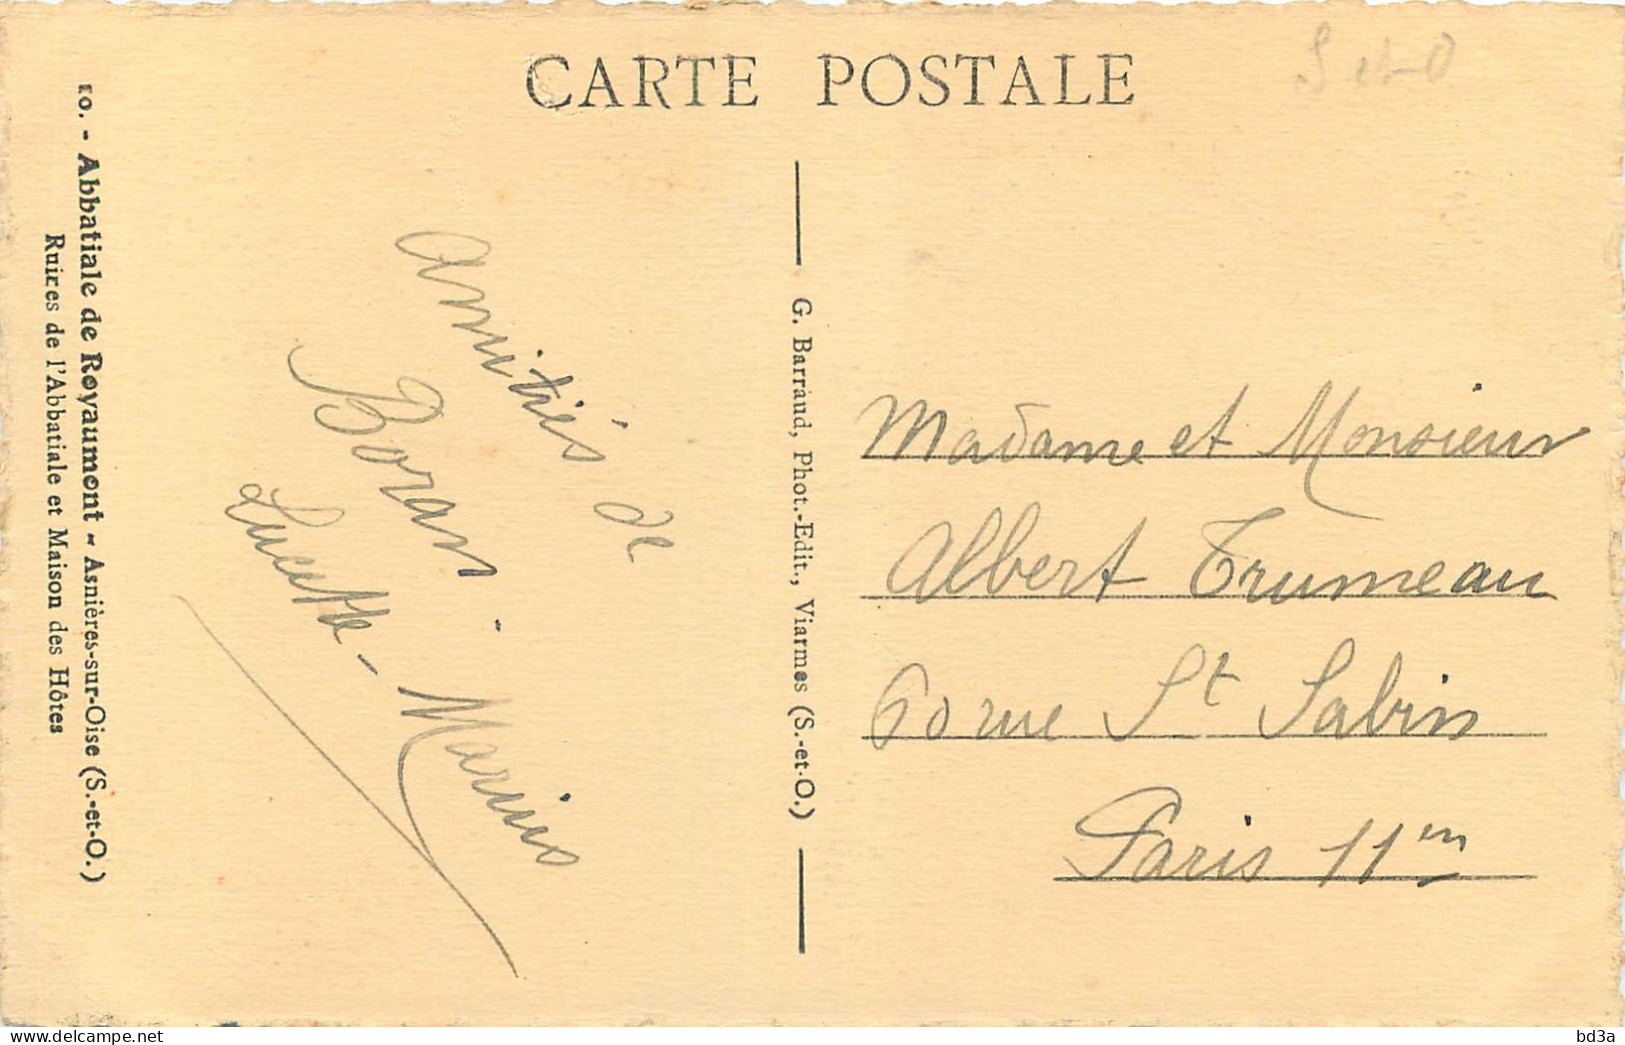 CARTE POSTALE
S et O
10. - Abbatiale de Royaumont - Asnières-sur-Oise (S.-et-O.)
Ruines de l'Abbatiale et Maison des Hôtes
Amitiés de
Boran
Lucette - Marius
G. Barraud, Phot.-Edit., Viarmes (S.-et-O.)
Madame et Monsieur
Albert Trumeau
60 rue St Sabin
Paris 11em
bd3a